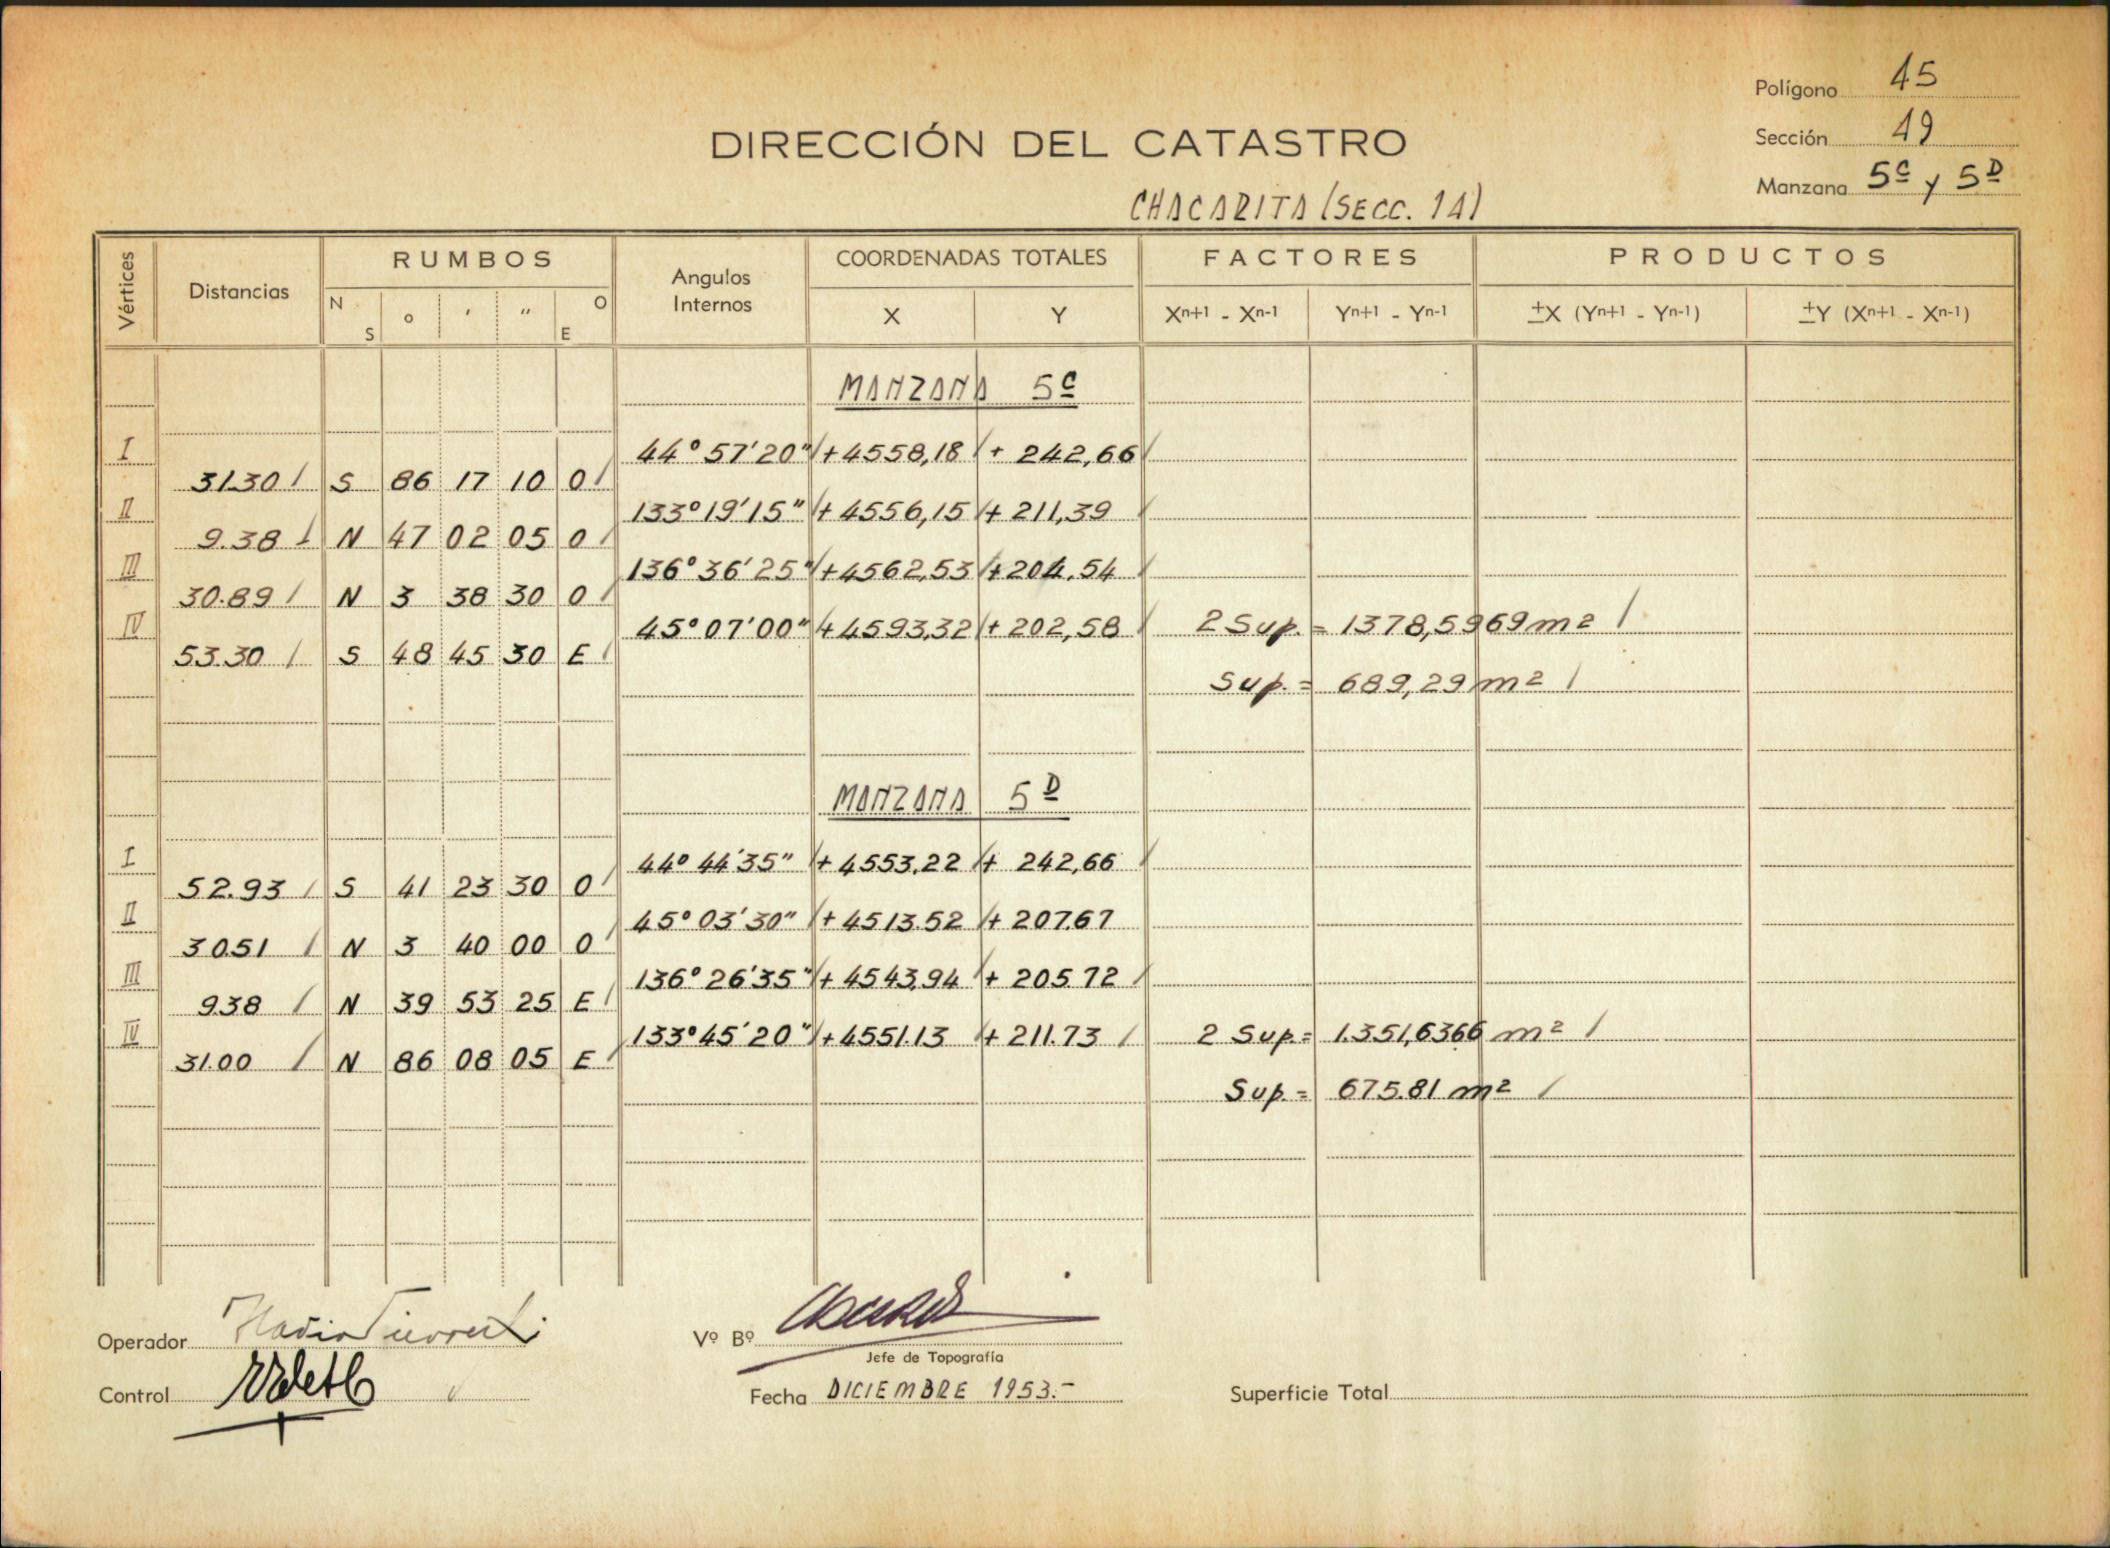 Polígono 45
DIRECCIÓN DEL CATASTRO
Sección 49
Manzana 5C y 5D
CHACARITA (SECC. 1A)
Vértices Distancias RUMBOS Angulos Internos COORDENADAS TOTALES FACTORES PRODUCTOS
N S o ′ ″ O E X Y Xn+1 - Xn-1 Yn+1 - Yn-1 ±X (Yn+1 - Yn-1) ±Y (Xn+1 - Xn-1)
MANZANA 5C
I 44° 57' 20" +4558,18 + 242,66
31.30 S 86 17 10 O
II 133° 19' 15" + 4556,15 + 211,39
9.38 N 47 02 05 O
III 136° 36' 25" +4562,53 +204,54
30.89 N 3 38 30 O
IV 45° 07' 00" +4593,32 + 202,58 2 Sup. = 1378,5969 m2
53.30 S 48 45 30 E
Sup. = 689,29 m2
MANZANA 5D
I 44° 44' 35" + 4553,22 + 242,66
52.93 S 41 23 30 O
II 45° 03' 30" + 4513.52 + 207.67
30.51 N 3 40 00 O
III 136° 26' 35" + 4543,94 + 205.72
9.38 N 39 53 25 E
IV 133° 45' 20" +4551.13 + 211.73 2 Sup = 1.351,6366 m2
31.00 N 86 08 05 E
Sup. = 675.81 m2
Operador
Vº Bº
Jefe de Topografía
Control
Fecha DICIEMBRE 1953.-
Superficie Total